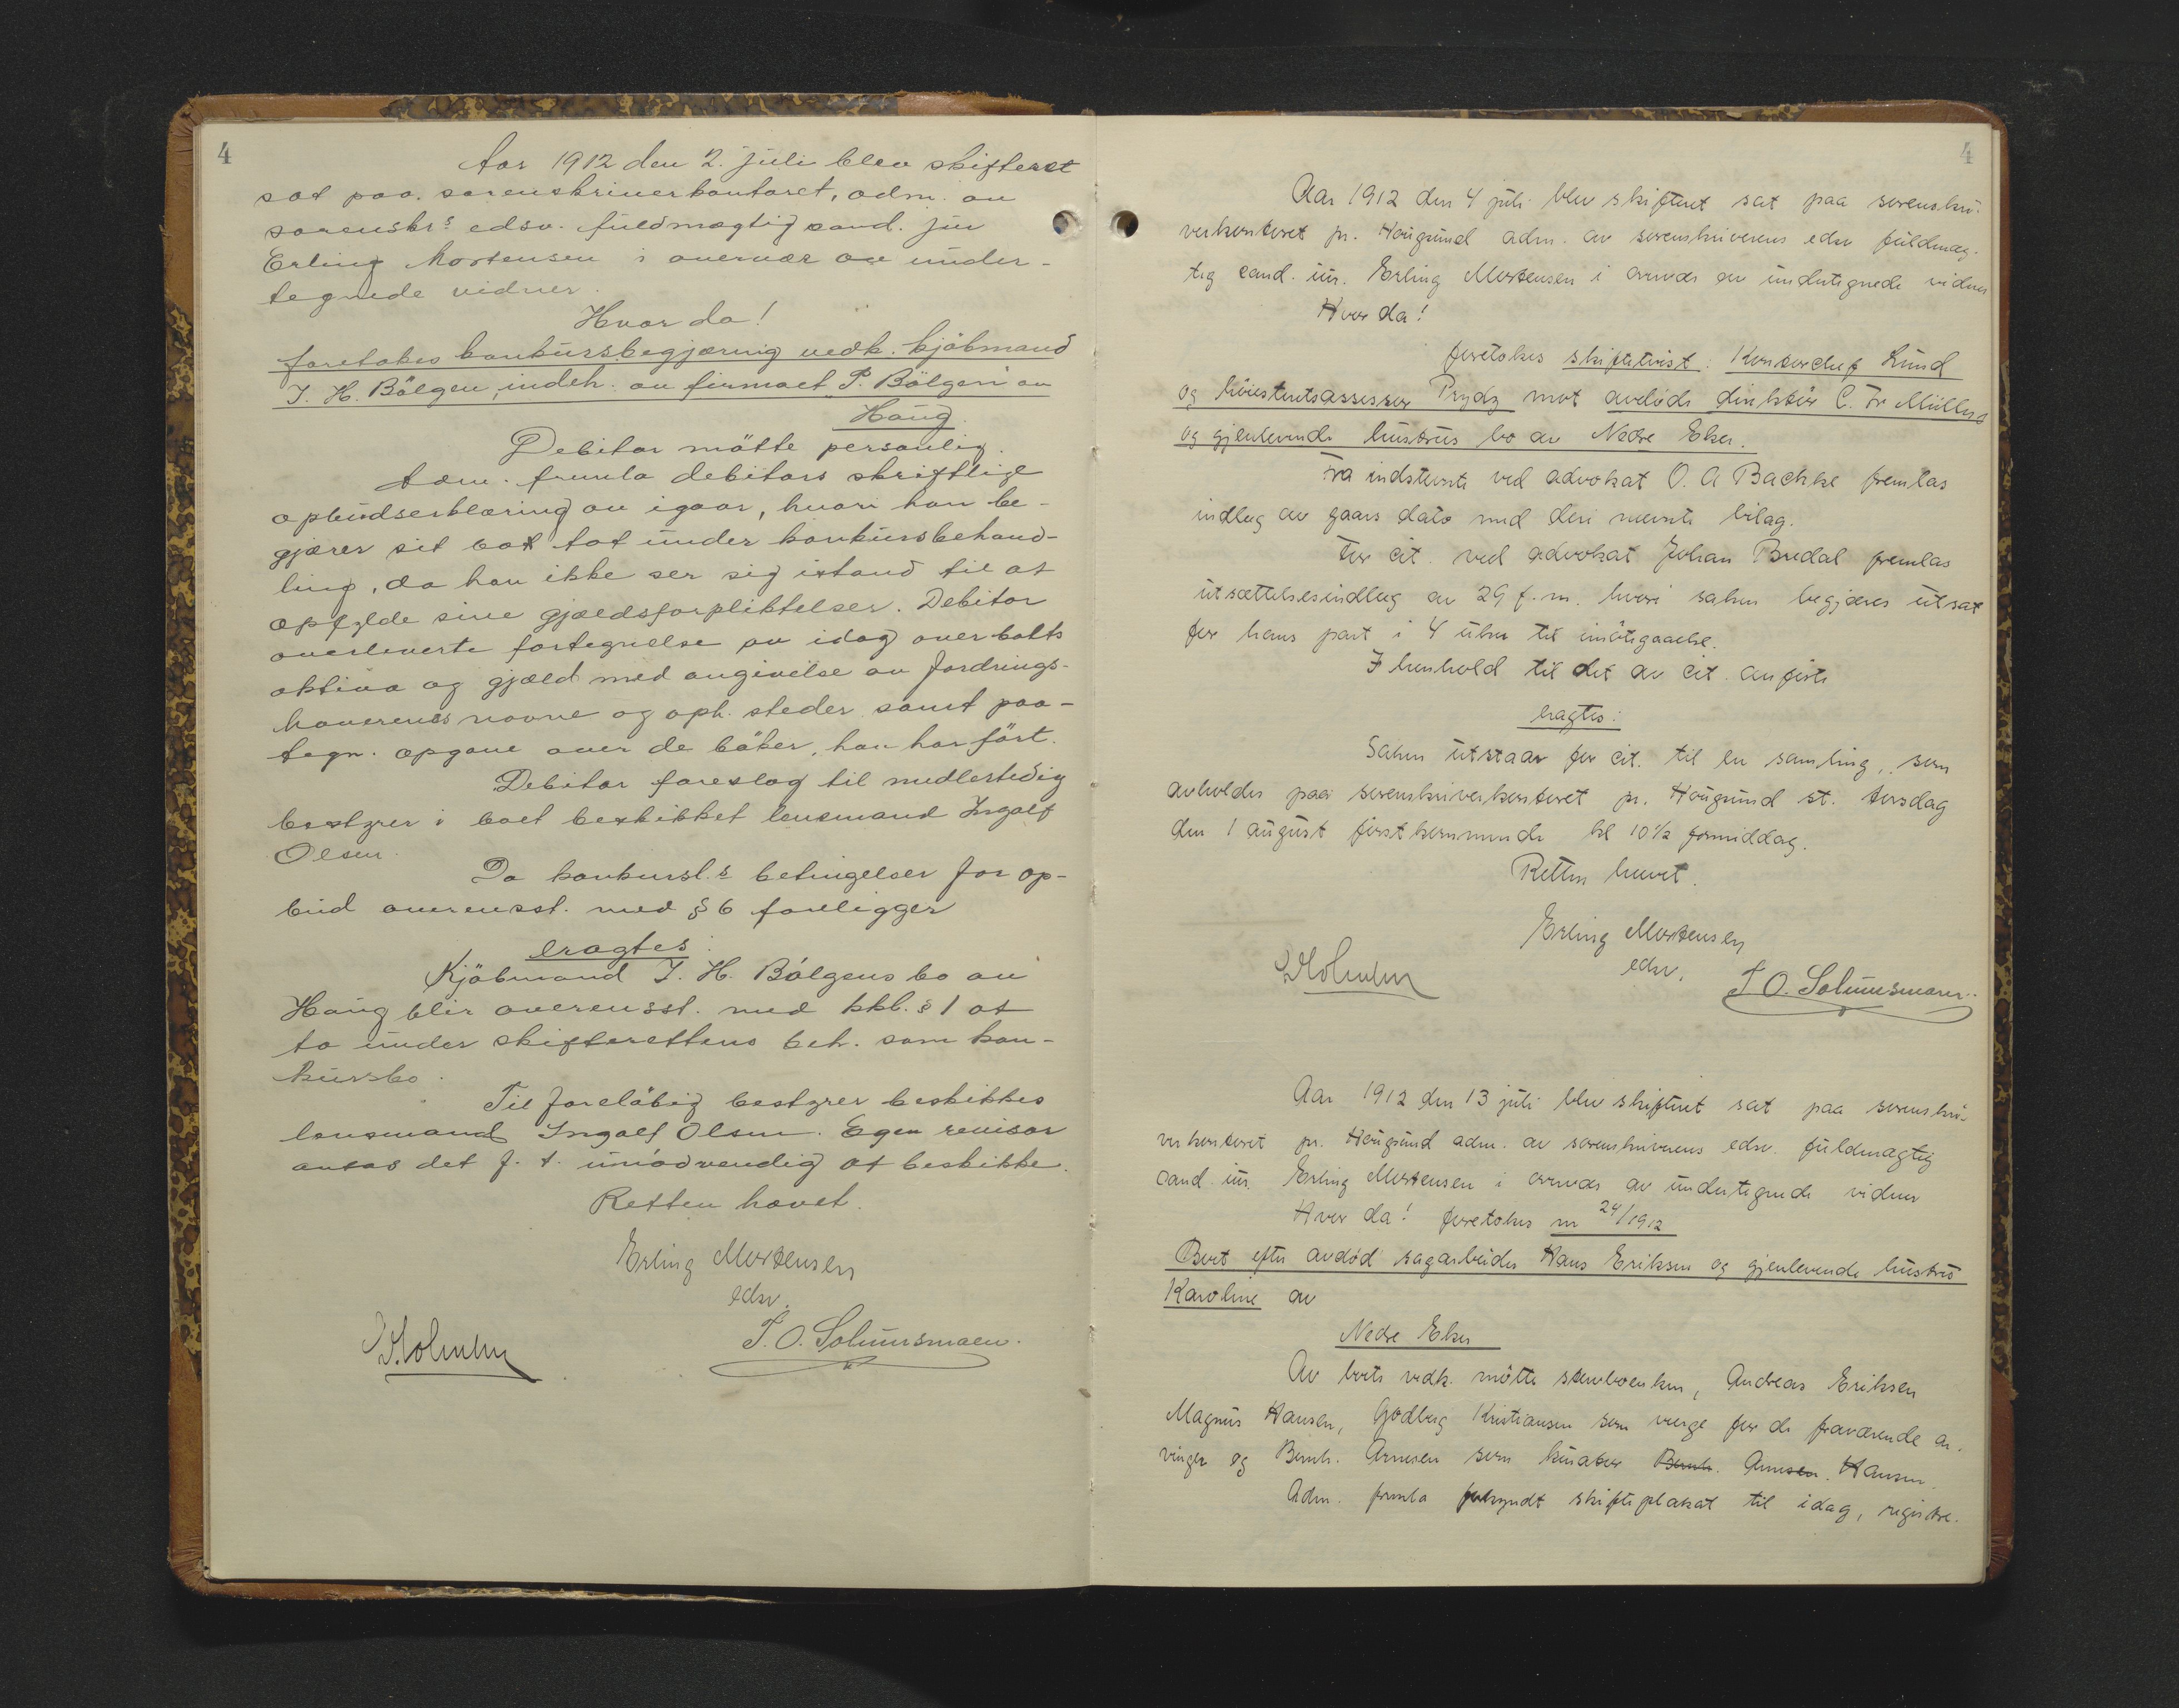 4
Aar 1912 den 2. juli blev skifteret
sat paa sorenskriverkontoret, adm. av
sorenskr.s edsv. fuldmægtig cand. jur
Erling Mortensen i overvær av under-
tegnede vidner.
Hvor da!
foretokes konkursbegjæring vedk. kjöbmand
J. H. Bölgen, indeh. av firmaet "P. Bölgen" av
Haug.
Debitor mötte personlig.
Adm. fremla debitors skriftlige
opbudserklæring av igaar, hvori han be-
gjærer sit bo tat under konkursbehand-
ling, da han ikke ser sig istand til at
opfylde sine gjældsforpliktelser. Debitor
overleverte fortegnelse av idag over boets
aktiva og gjæld med angivelse av fordrings-
havernes navne og oph. steder samt paa-
tegn. opgave over de böker, han har fört.
Debitor foreslog til midlertidig
bestyrer i boet beskikket lensmand Ingolf
Olsen.
Da konkursl.s betingelser for op-
bud overensst. med § 6 foreligger
eragtes:
Kjöbmand J. H. Bölgens bo av
Haug blir overensst. med kkl. § 1 at
ta under skifterettens beh. som kon-
kursbo.
Til foreløbig bestyrer beskikkes
lensmand Ingolf Olsen. Egen revisor
antas det f. t. unödvendig at beskikke.
Retten hævet.
Erling Mortensen
edsv.
Holmen
T. O. Solumsmoen.
4
Aar 1912 den 4 juli blev skifteret sat paa sorenskri-
verkontoret pr. Hougsund adm. av sorenskriverens edsv fuldmæg-
tig cand. jur. Erling Mortensen i overvær av undertegnede vidner
Hvor da!
foretokes skiftetvist: Kontorchef Lund
og höiesteretsassessor Prydz mot avdöde direktör C. Fr Müllers
og gjenlevende hustrus bo av Nedre Eker.
Fra indstevnte ved advokat O. A Bachke fremlas
indlæg av gaars dato med deri nævnte bilag.
For cit. ved advokat Johan Bredal fremlas
utsættelsesindlæg av 29 f. m. hvori saken begjæres utsat
for hans part i 4 uker til imötegaaelse.
I henhold til det av cit. anførte
eragtes:
Saken utstaar for cit. til en samling, som
avholdes paa sorenskriverkontoret pr. Hougsund st. torsdag
den 1 august førstkommende kl 10 1/2 formiddag.
Retten hævet.
Erling Mortensen
edsv.
Holmen
T O. Solumsmoen.
Aar 1912 den 13 juli blev skifteret sat paa sorenskri-
verkontoret pr. Hougsund adm. av sorenskriverens edsv. fuldmægtig
cand. jur. Erling Mortensen i overvær av undertegnede vidner
Hvor da! foretokes nr 24/1912
Boet efter avdöd sagarbeider Hans Eriksen og gjenlevende hustru
Karoline av
Nedre Eker
Av boets vedk. mötte stervboenken, Andreas Eriksen
Magnus Hansen, Gödberg Kristiansen som verge for de fraværende ar-
vinger og Bernh. Arnesen som kurator Bernh. Arnesen. Hansen.
Adm. fremla forkyndt skifteplakat til idag, registre-